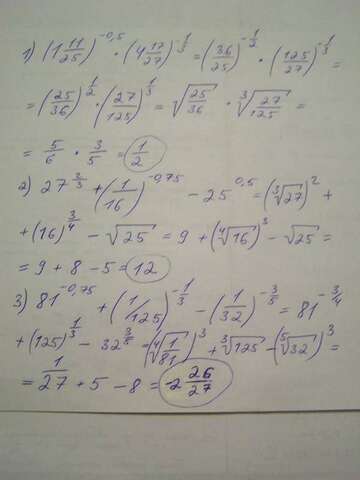 1) (1 11/25)^-0,5 · (4 17/27)^-1/3 = (36/25)^-1/2 · (125/27)^-1/3 =
= (25/36)^1/2 · (27/125)^1/3 = √25/36 · ∛27/125 =
= 5/6 · 3/5 = 1/2
2) 27^2/3 + (1/16)^-0,75 - 25^0,5 = (∛27)^2 +
+ (16)^3/4 - √25 = 9 + (∜16)^3 - √25 =
= 9 + 8 - 5 = 12
3) 81^-0,75 + (1/125)^-1/3 - (1/32)^-3/5 = 81^-3/4
+ (125)^1/3 - 32^3/5 = (∜1/81)^3 + ∛125 - (⁵√32)^3 =
= 1/27 + 5 - 8 = -2 26/27